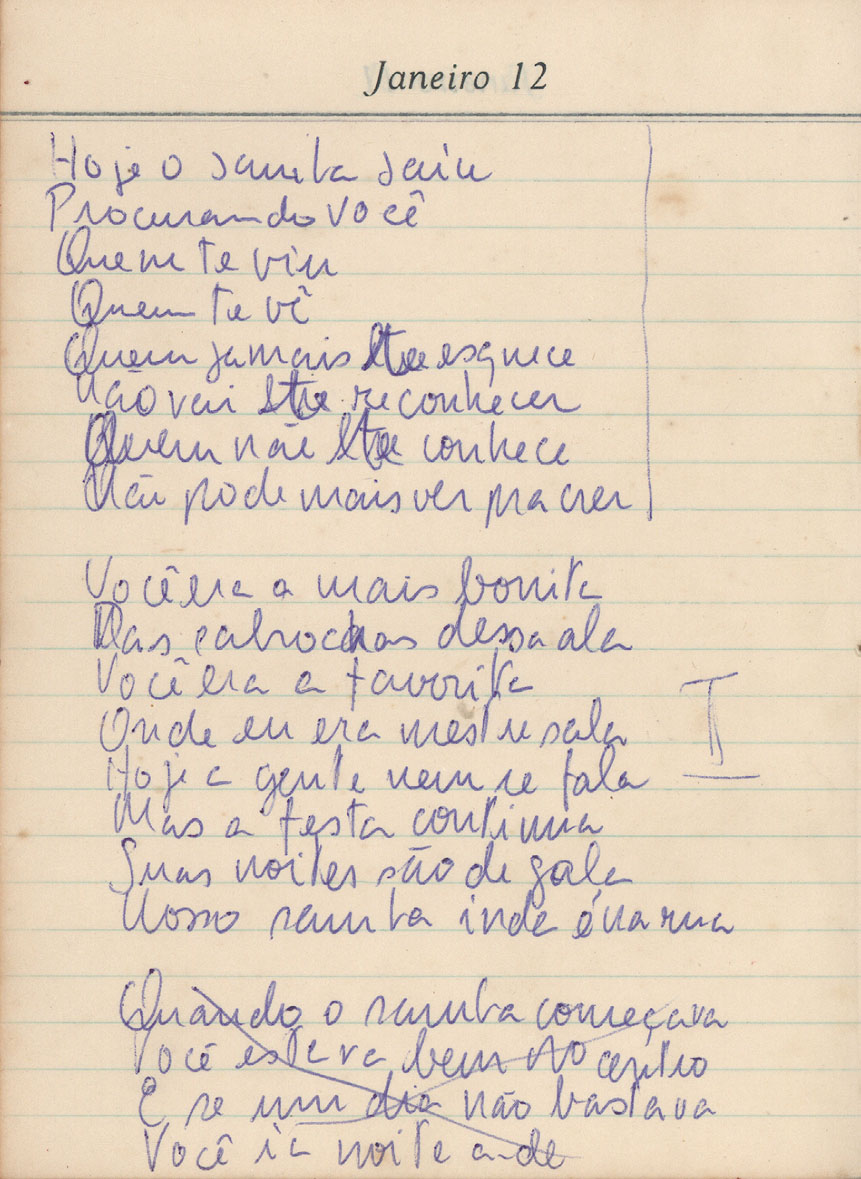 Janeiro 12
Hoje o samba saiu
Procurando você
Quem te viu
Quem te vê
Quem jamais te esquece
Não vai te reconhecer
Quem não te conhece
Não pode mais ver pra crer
Você era a mais bonita
Das cabrochas dessa ala
Você era a favorita
Onde eu era mestre sala
I
Hoje a gente nem se fala
Mas a festa continua
Suas noites são de gala
Nosso samba inda é na rua
Quando o samba começava
Você estava bem no centro
E se um dia não bastava
Você ia noite a-de